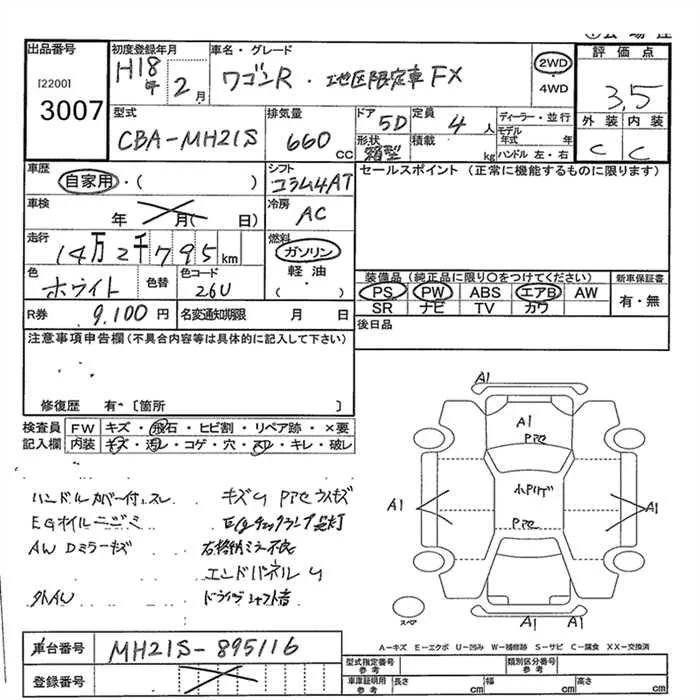 出品番号
[2200]
3007
初度登録年月
H18年 2月
車名・グレード
ワゴンR ・ 地区限定車 FX
2WD
4WD
評価点
3,5
外装 内装
C C
型式
CBA-MH21S
排気量
660 cc
ドア
5D
形状
箱型
定員
4人
積載
kg
ディーラー・並行
モデル年式 年
ハンドル 左・右
車歴
自家用・( )
シフト
コラム4AT
セールスポイント (正常に機能するものに限ります)
車検
年 月( 日)
冷房
AC
走行
14万2千795km
燃料
ガソリン
軽油
( )
色
ホワイト
色替
色コード
26U
装備品 (純正品に限り○をつけてください)
PS PW ABS エアB AW
SR ナビ TV カワ
新車保証書
有・無
R券 9,100円
名変通知期限 月 日
後日品
注意事項申告欄 (不具合内容等は具体的に記入して下さい)
修復歴 有・〔箇所 〕
検査員記入欄
FW キズ・飛石・ヒビ割・リペア跡・×要
内装 キズ・汚レ・コゲ・穴・スレ・キレ・破レ
ハンドルカバー付,スレ
EGオイルニジミ
AW Dミラーキズ
社外AW
キズU
EGチェックランプ点灯
右格納ミラー不良
エンドパネルU
ドライブシャフト音
A1
A1
A1
A1
A1 A1
スペア
A-キズ E-エクボ U-凹み W-補修跡 S-サビ C-腐食 XX-交換済
車台番号
MH21S-895116
登録番号
型式指定番号
参考
類別区分番号
参考
車庫証明用
参考
長さ cm
幅 cm
高さ cm